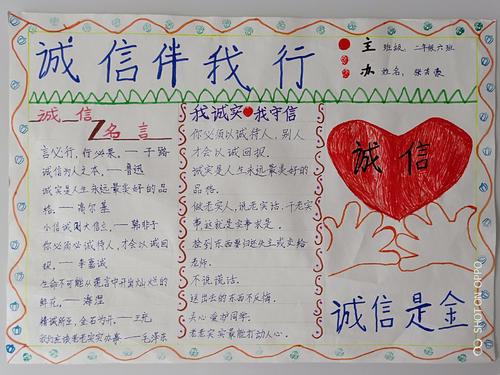 诚信伴我行
主 班级：二年级六班
办 姓名：张
诚信
名言
言必行，行必果。——子路
诚信为人之本。——鲁迅
诚实是人生永远最美好的品
格。——高尔基
小信诚则大信立。——韩非子
你必须以诚待人，才会以诚回
报。——李嘉诚
生命不可能从谎言中开出灿烂的
鲜花。——海涅
精诚所至，金石为开。——王充
我们应该老老实实办事——毛泽东
我诚实 我守信
你必须以诚待人，别人
才会以诚回报。
诚实是人生永远最美好的
品格。
做老实人，说老实话，干老实
事这就是实事求是。
捡到东西要归还失主或交给
老师。
不说谎话。
送出去的东西不反悔。
关心爱护同学。
老老实实最能打动人心。
诚信
诚信是金
SHOT ON OPPO